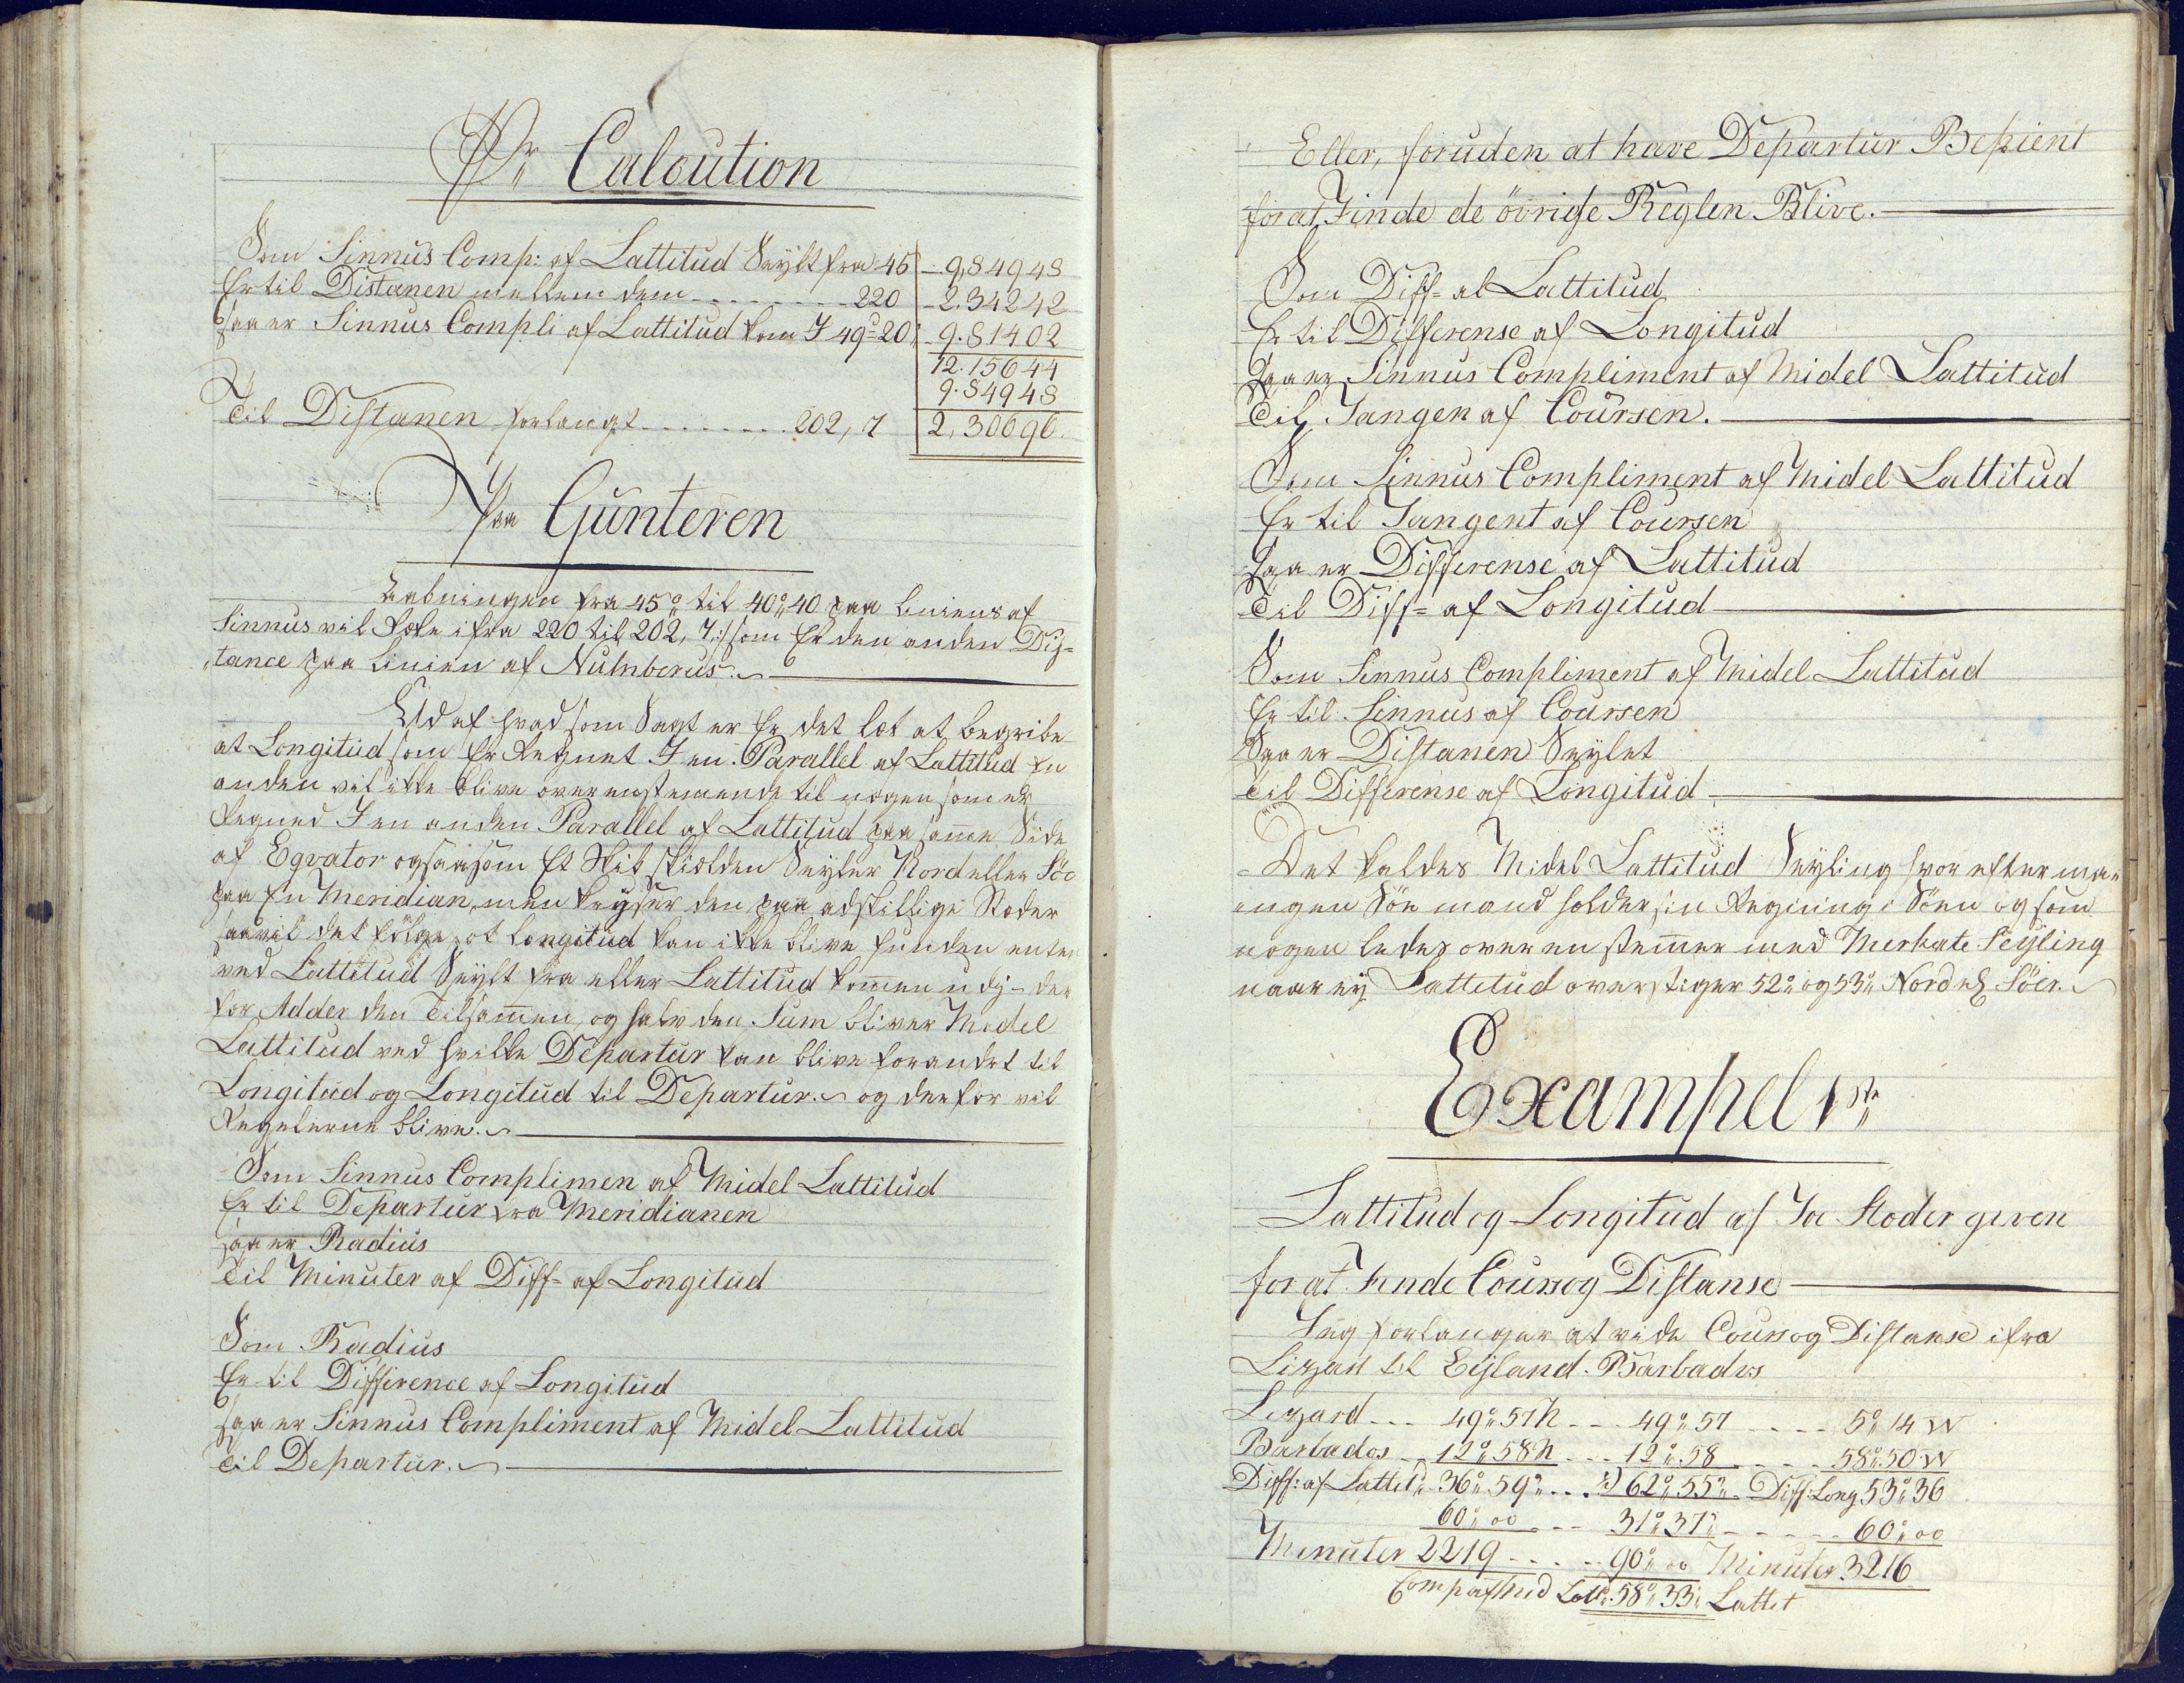 Pr Calcution
Som Sinnus Comp: af Lattitud Seylt fra 45 9,84948
Er til Distanen mellem dem 220 2,34242
Saa er Sinnus Compli af Lattitud kom I 49°=20 9.81402
12.15644
9.84948
Til Distanen forlangt 202,7 2,30696
Paa Gunteren
Aabningen fra 45° til 40° 40 paa Liniens af
Sinnus vil Række ifra 220 til 202,7: som Er den anden Dis=
tance paa Linien af Numberus.
Ud af hvad som Sagt er Er det let at begribe
at Longitud som Er Regnet I en Parallel af Lattitud En
anden vil ikke blive overenstemende til nogen som er
Regned I en anden Parallel af Lattitud paa samme Side
af Eqvator ogsaasom Et Skib skiølden Seyler Nord eller Søe
paa En Meridian, men krydser den paa adskillige Steder
saa vil det følge at Longitud kan ikke blive funden enten
ved Lattitud Seylt fra eller Lattitud kommen udj= der
for Adder den Tilsammen, og halv den Sum bliver Medel
Lattitud ved hvilke Departur kan blive forandret til
Longitud og Longitud til Departur. og derfor vil
Regelerne blive.
Som Sinnus Complimen af Midel Lattitud
Er til Departur fra Meridianen
saa er Radius
Til Minuter af Diff= af Longitud
Som Radius
Er til Difference af Longitud
saa er Sinnus Compliment af Midel Lattitud
Til Departur.
Eller, foruden at have Departur Bepient
for at Finde de övrige Reglen Blive.
Som Diff= al Lattitud
Er til Differense af Longitud
Saa er Sinnus Compliment af Midel Lattitud
Til Tangen af Coursen.
Som Sinnus Compliment af Midel Lattitud
Er til Tangent af Coursen
Saa er Differense af Lattitud
Til Diff= af Longitud
Som Sinnus Compliment af Midel Lattitud
Er til Sinnus af Coursen
Saa er Distanen Seylet
Til Differense af Longitud
Det kaldes Midel Lattitud Seyling hvor efter man
engen Sön mand holder sin Regning i Söen og som
nogen ledes over en stemmer med Merkate Seyling
naar ey Lattitud overstiger 52° og 53° Nord el Söer.
Exampel 1ste
Lattitud og Longitud af To Stoder given
for at Finde Cours og Distanse
Jeg forlanger at vide Cours og Distanse ifra
Lizzan til Eyland Barbados
Lezzard 49° 57 N 49° 57 5° 14 W
Barbados 12° 58 N 12° 58 58° 50 W
Diff: af Lattit 36° 59 2) 62° 55 Diff: Long 53° 36
60° 00 31° 37 60° 00
Minuter 2219 90° 00 Minuter 3216
Comp af Mid Latt. 58° 33 Lattet